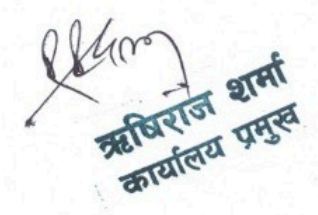 ऋषिराज शर्मा
कार्यालय प्रमुख